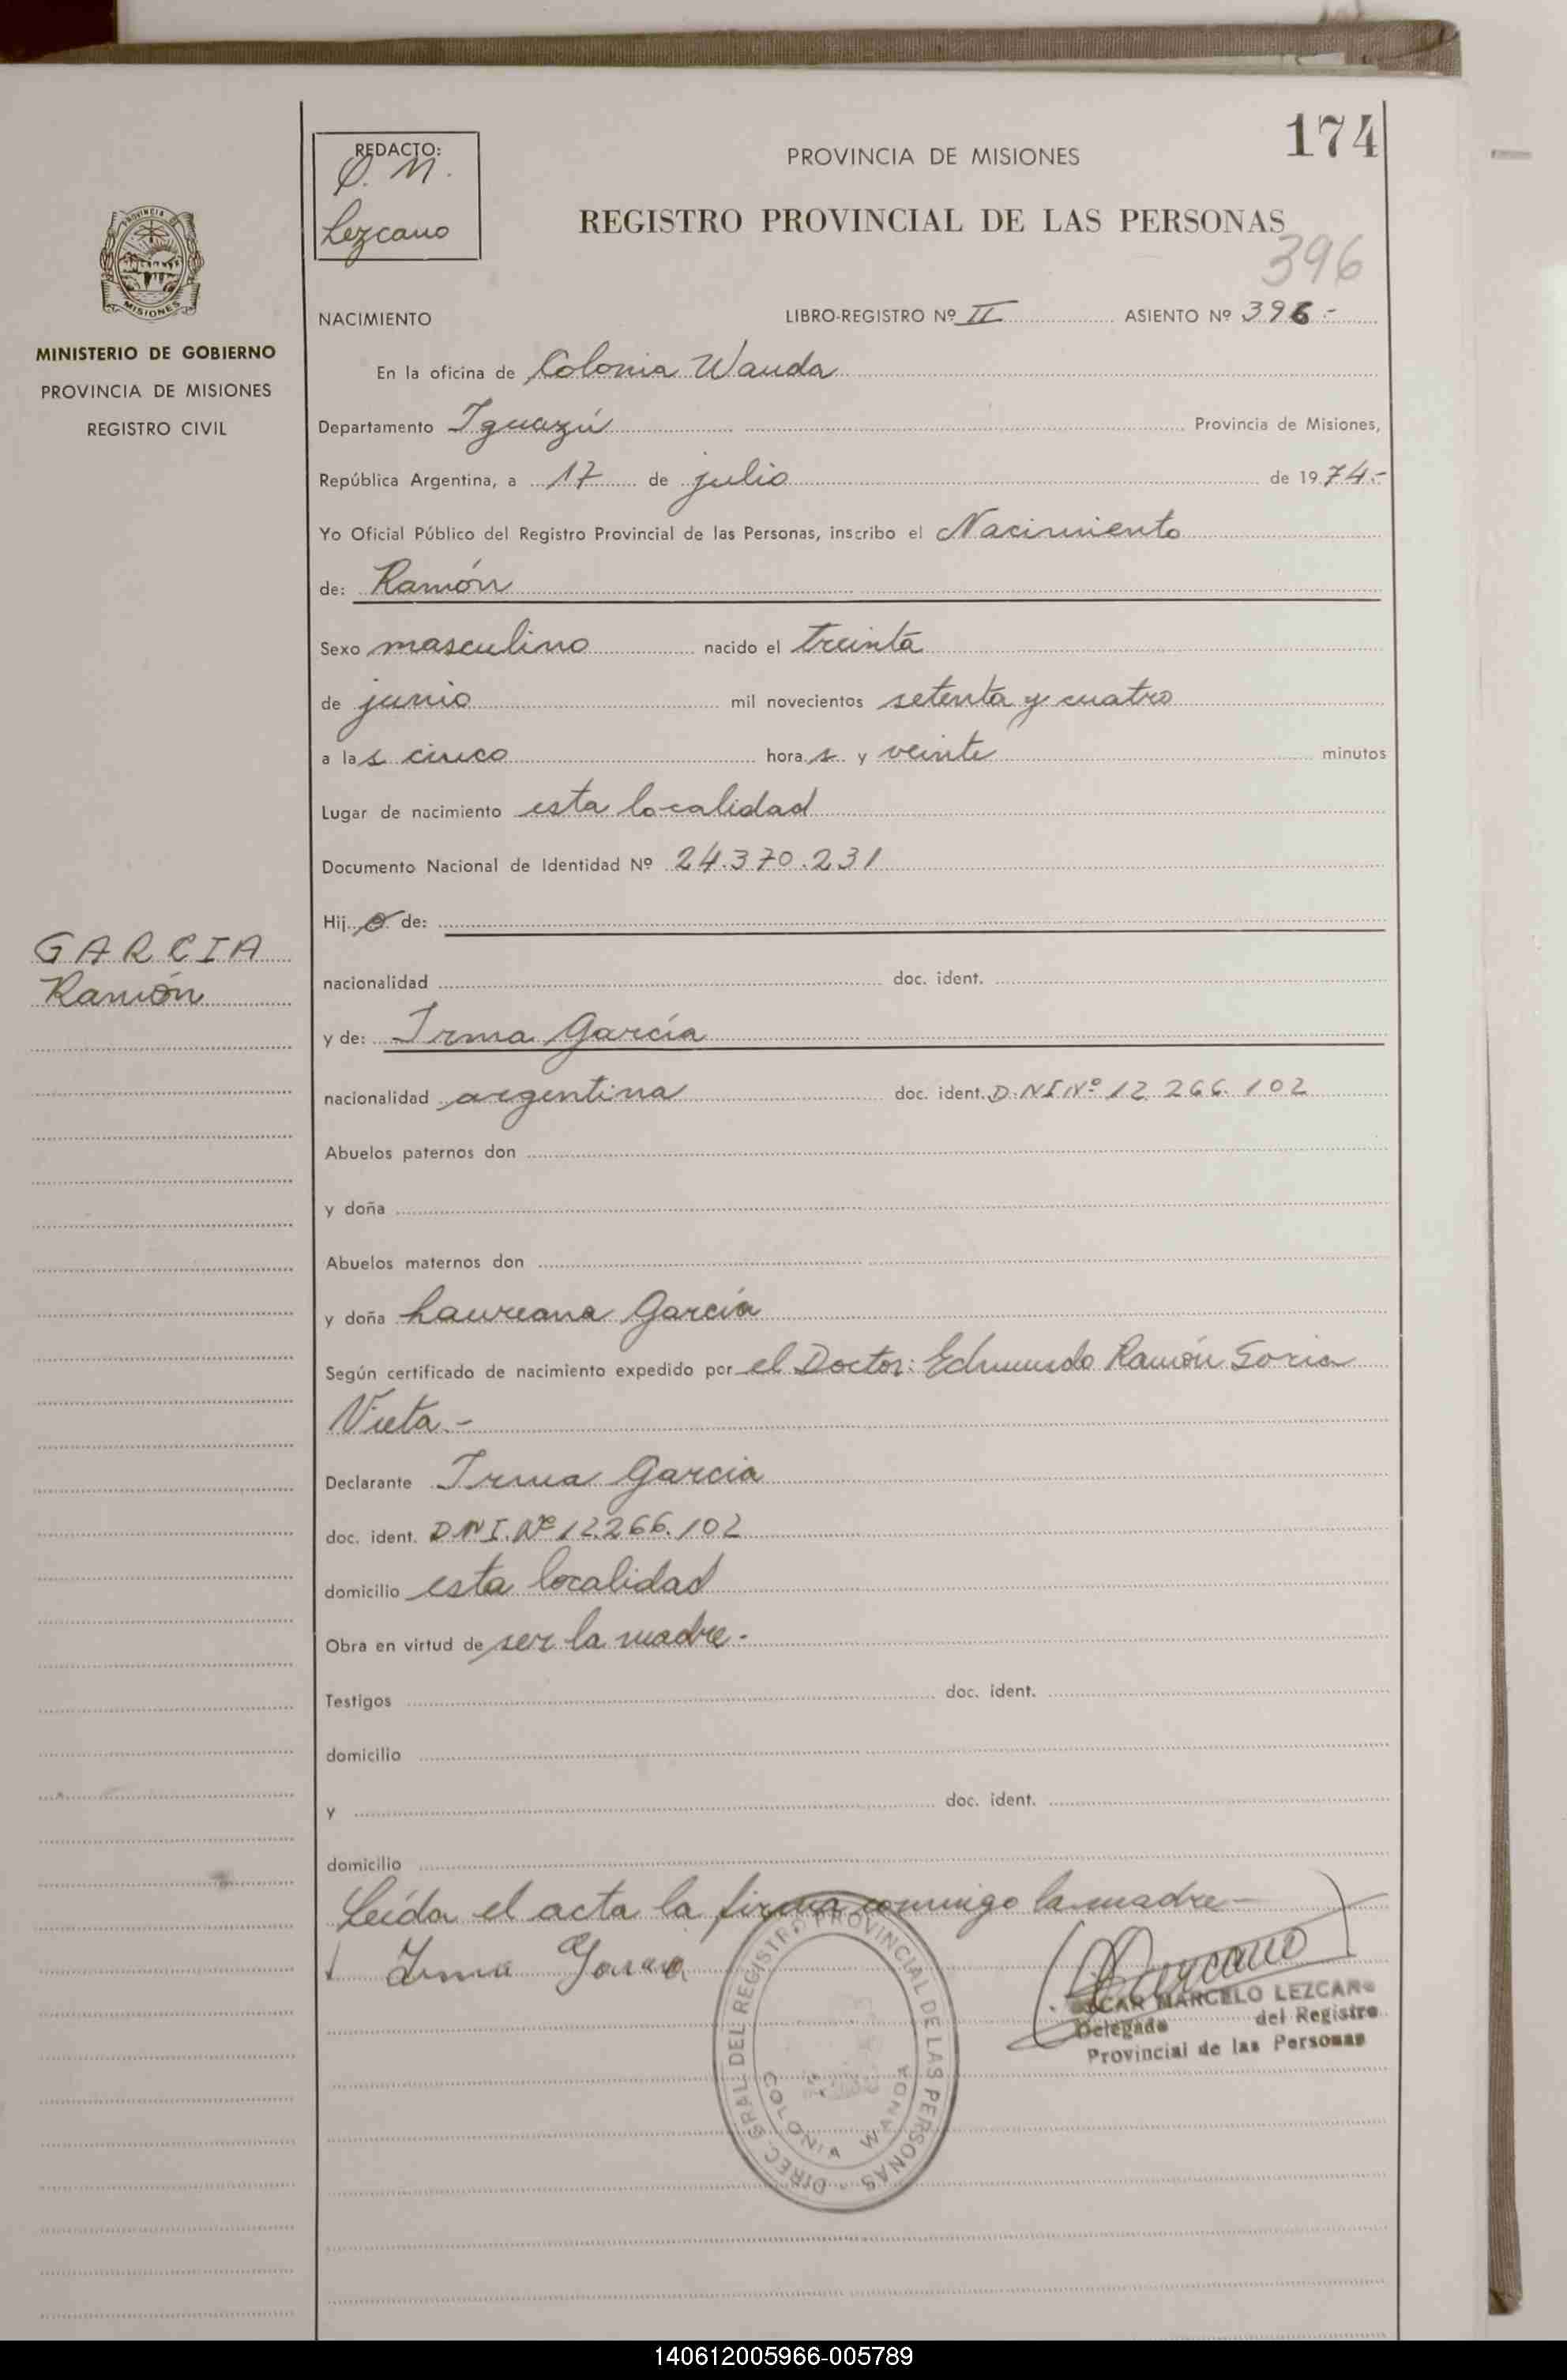 174
REDACTO:
O. M.
Lezcano
PROVINCIA DE MISIONES
REGISTRO PROVINCIAL DE LAS PERSONAS
396
PROVINCIA
MISIONES
MINISTERIO DE GOBIERNO
PROVINCIA DE MISIONES
REGISTRO CIVIL
GARCIA
Ramón
NACIMIENTO LIBRO-REGISTRO Nº II ASIENTO Nº 396.-
En la oficina de Colonia Wanda
Departamento Iguazú Provincia de Misiones,
República Argentina, a 17 de julio de 1974.-
Yo Oficial Público del Registro Provincial de las Personas, inscribo el Nacimiento
de: Ramón
Sexo masculino nacido el treinta
de junio mil novecientos setenta y cuatro
a las cinco horas y veinte minutos
Lugar de nacimiento esta localidad
Documento Nacional de Identidad Nº 24.370.231
Hijo de:
nacionalidad doc. ident.
y de: Irma García
nacionalidad argentina doc. ident. D.N.I Nº 12.266.102
Abuelos paternos don
y doña
Abuelos maternos don
y doña Laureana García
Según certificado de nacimiento expedido por el Doctor: Edmundo Ramón Soria
Vieta.-
Declarante Irma Garcia
doc. ident. D.N.I. Nº 12.266.102
domicilio esta localidad
Obra en virtud de ser la madre.-
Testigos doc. ident.
domicilio
y doc. ident.
domicilio
Leída el acta la firma conmigo la madre-
Irma Garcia
Lezcano
OSCAR MARCELO LEZCANO
Delegado del Registro
Provincial de las Personas
DIREC. GRAL. DEL REGISTRO PROVINCIAL DE LAS PERSONAS
COLONIA WANDA
140612005966-005789